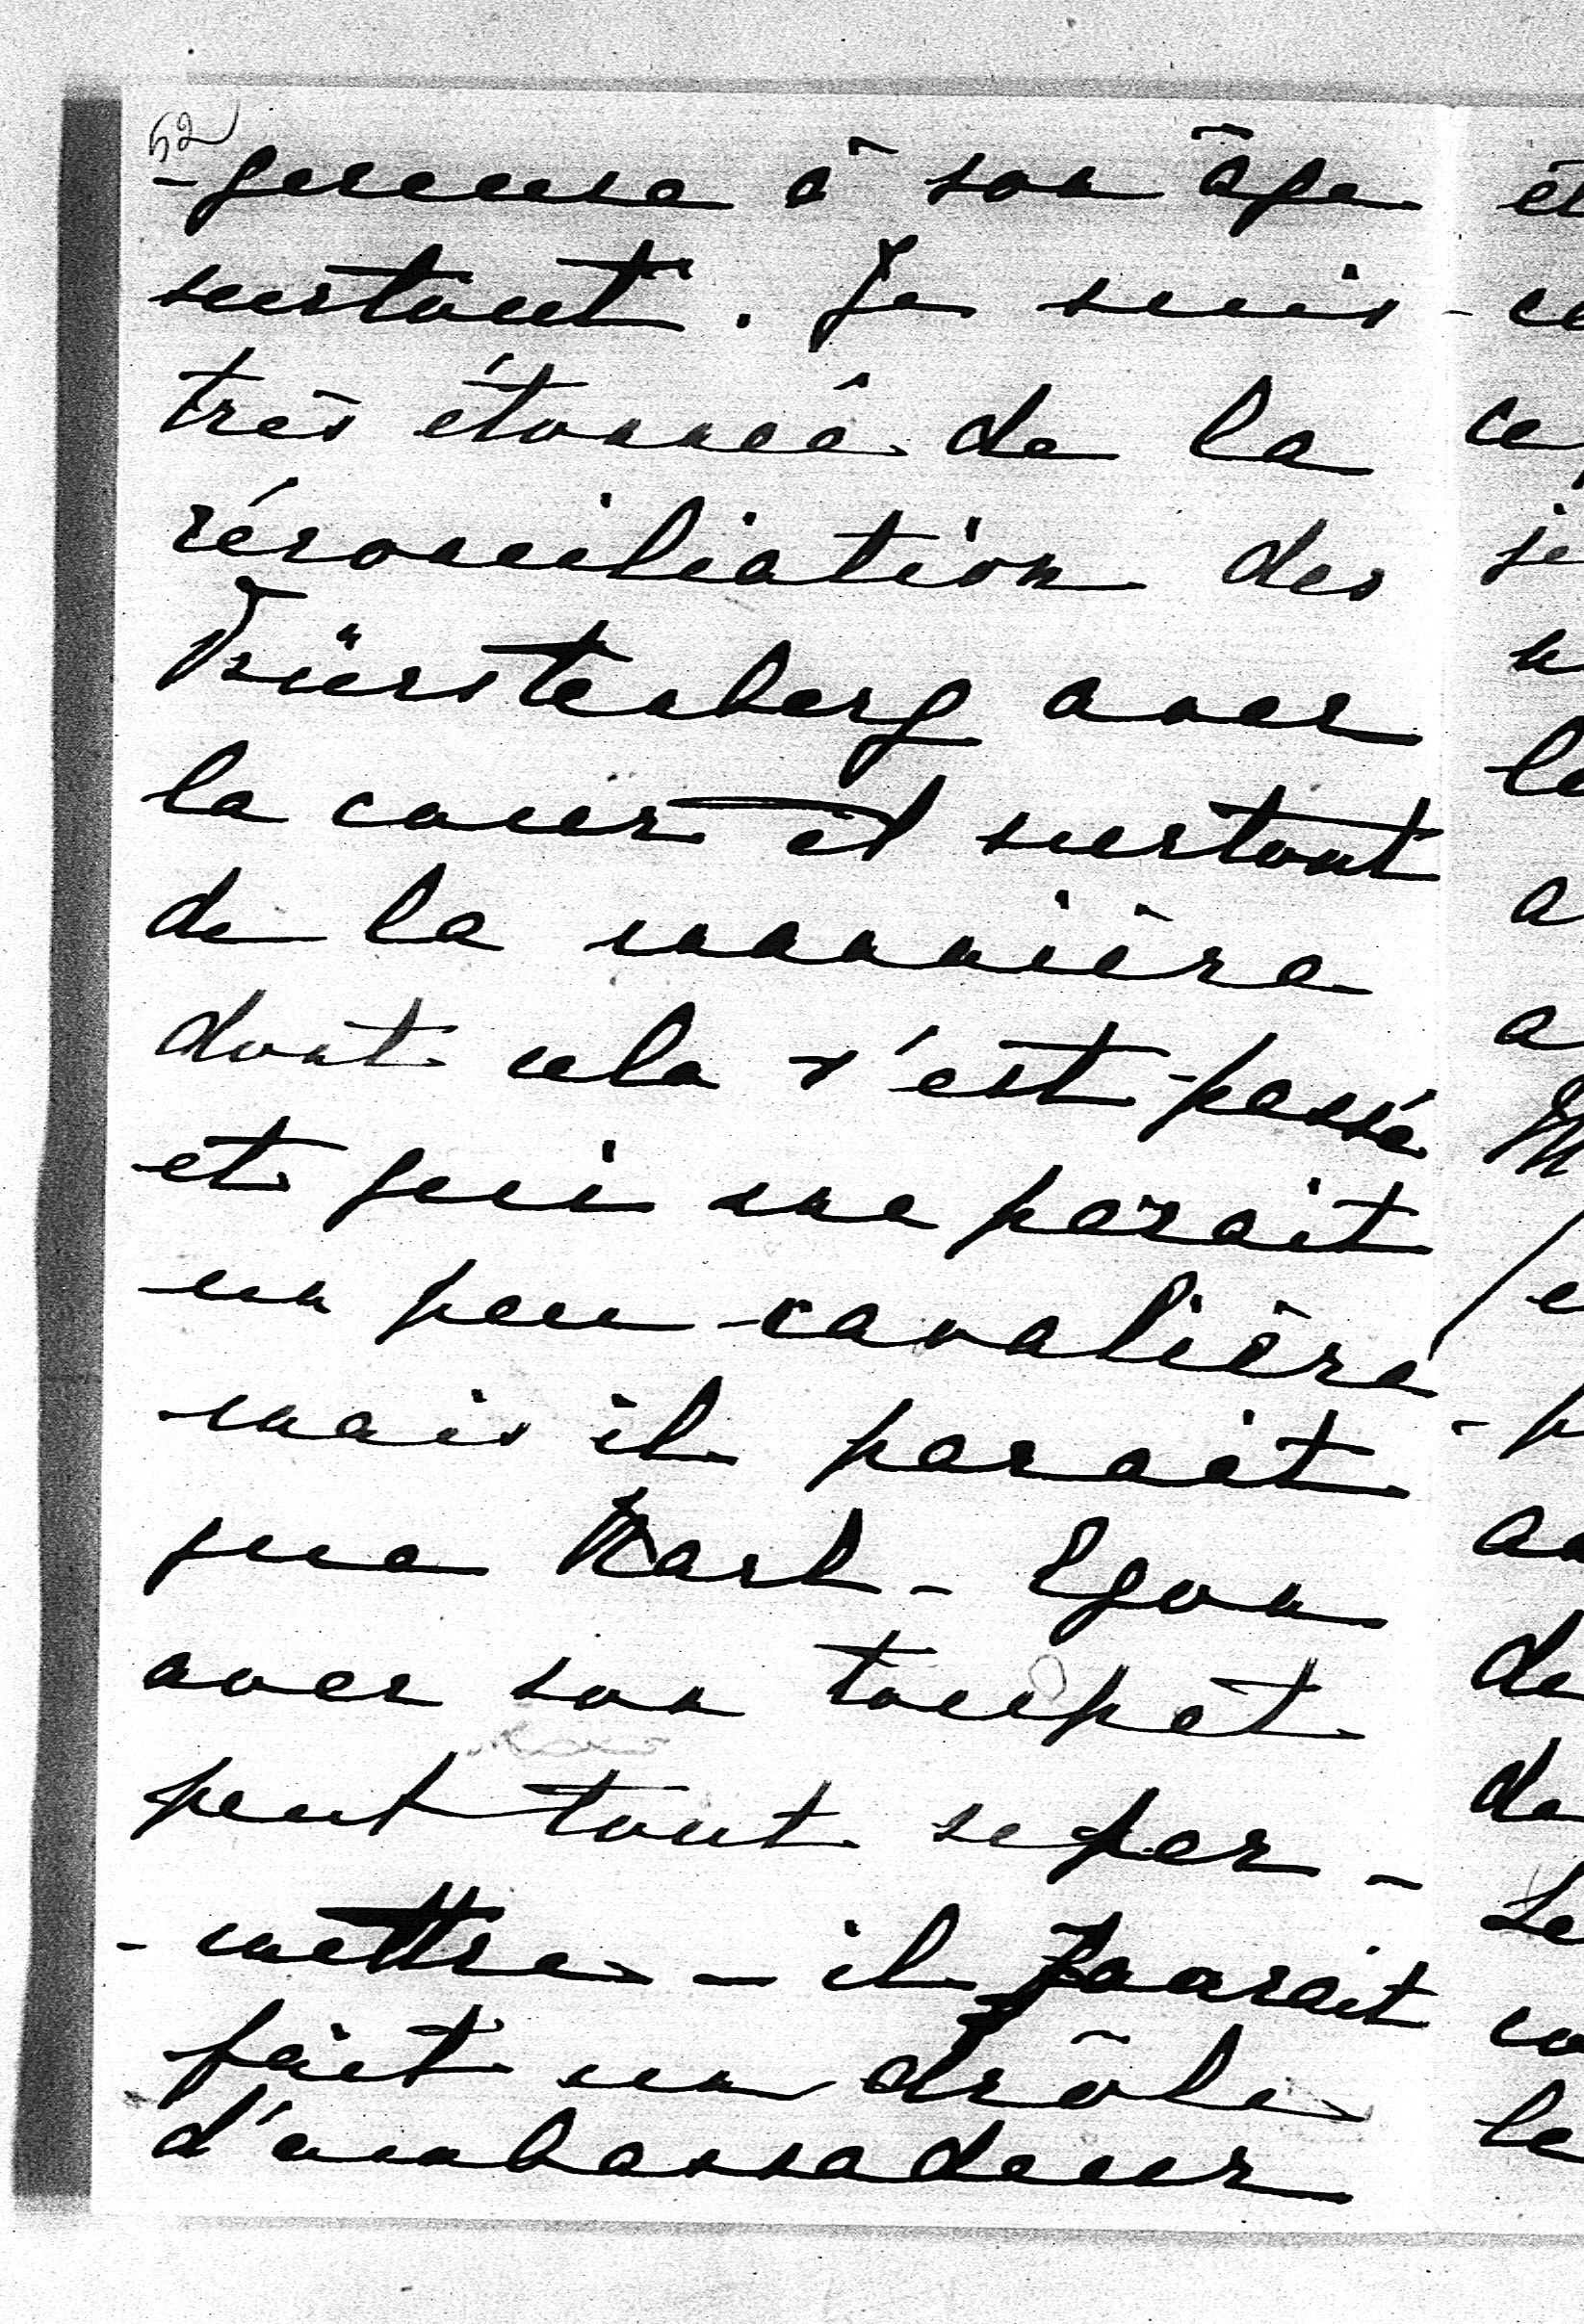 52
-gereuse à son âge
surtout. Je suis
très étonnée de la
réconciliation des
Fürstenberg avec
la cour et surtout
de la manière
dont cela s'est passé
et qui me parait
un peu cavalière
mais il parait
que Karl-Egon
avec son toupet
peut tout se per-
-mettre - il aurait
fait un drôle
d'ambassadeur